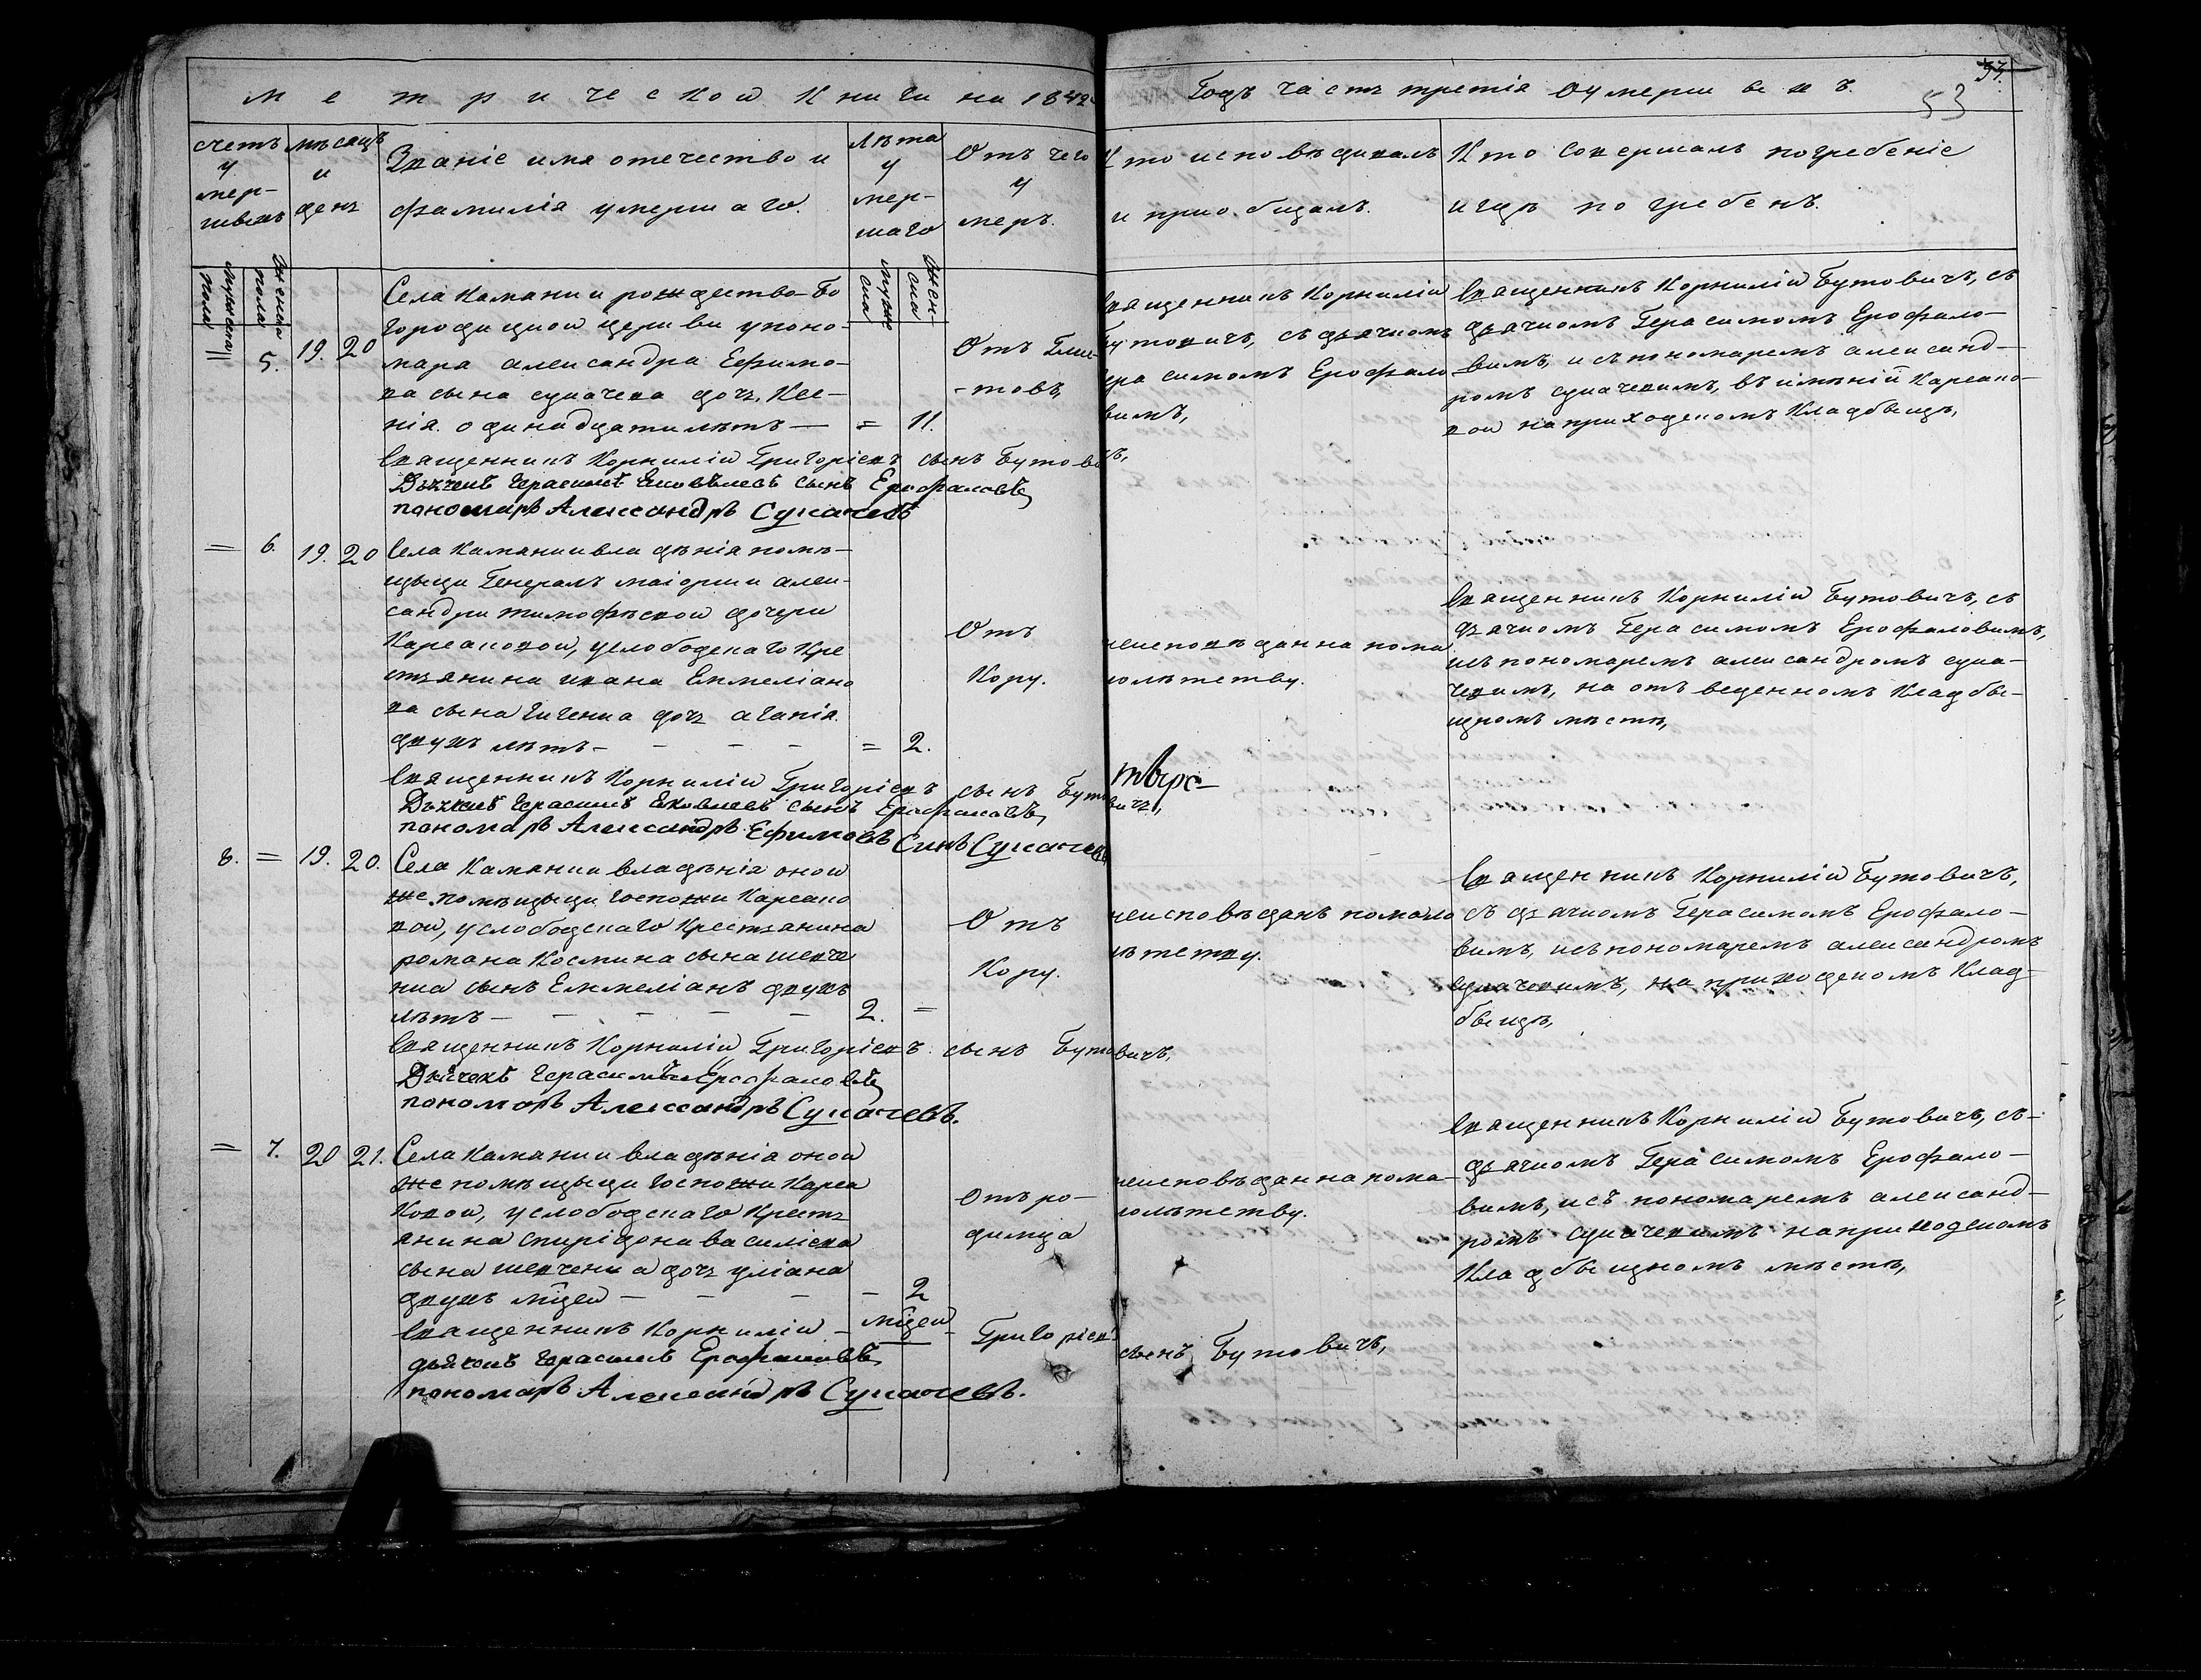 Метрической Книги на 1842
Годъ часть третія Оумершихъ.
53
счетъ умершихъ
мѣсяцъ и день
Званіе имя отечество и
фамилія умершаго.
Лѣта умершаго
Отъ чего умеръ.
Кто исповѣдивалъ
и пріобщалъ.
Кто совершалъ погребеніе
и гдѣ погребенъ.
Мужеска пола
Женска пола
Мужеска
Женска
5. 19. 20
Села Камянки рождество-Бо
городицкой церкви у поно-
мара александра Ефимо-
ва сына сукачева дочь, Ксе-
нія. одинадцати лѣтъ — = 11.
Отъ
Священникъ Корнилій
Бутовичъ, съ дьячкомъ
Герасимомъ Ерофало
вимъ,
Священникъ Корнилій Бутовичъ, съ
дьячкомъ Герасимомъ Ерофало-
вимъ, и съ пономаремъ александ-
ромъ сукачевимъ, въ имѣній Карсако-
вой на приходскомъ Кладбыщѣ,
Священникъ Корнилій Григоріевъ сынъ Бутовичъ,
Дьячекъ Герасимъ Яковлевъ сынъ Ерофаловъ,
пономаръ Александръ Сукачевъ
= 6. 19. 20
Села Камянки владѣнія помѣ-
щыци Генералъ маіорши алек-
сандри тимофѣевой дочери
Карсаковой, услободскаго Кре
стьянина ивана Еммеліано
ва сына дочь агапія.
двухъ лѣтъ - - - - = 2.
Отъ
Кору.
неисповѣданна пома
лолѣтству.
Священникъ Корнилій Бутовичъ, съ
дьячкомъ Герасимомъ Ерофаловимъ,
исъ пономаремъ александромъ сука-
чевимъ, на отъведенномъ Кладбы-
щномъ мѣстѣ,
Священникъ Корнилій Григоріевъ сынъ Бутовичъ,
Дьячекъ Герасимъ Яковлевъ сынъ Ерофаловъ,
пономаръ Александръ Ефимовъ Синъ Сукачевъ
8. = 19. 20.
Села Камянки владѣнія оной
же помѣщыци госпожи Карсако
вой, услободскаго Крестьянина
романа Космина сына шевче
нка сынъ Еммеліанъ двухъ
лѣтъ - - - - - 2. =
Отъ
Кору.
неисповѣданъ помало
лѣтству.
Священникъ Корнилій Бутовичъ,
съ дьячкомъ Герасимомъ Ерофало-
вимъ, исъ пономаремъ александромъ
сукачевимъ, на приходскомъ Клад-
быщѣ,
Священникъ Корнилій Григоріевъ сынъ Бутовичъ,
Дьячекъ Герасимъ Ерофаловъ,
пономаръ Александръ Сукачевъ.
= 7. 20 21.
Села Камянки владѣнія оной
же помѣщыци госпожи Карса
Ковой, услободскаго Кресть
янина спирідона василіева
сына шевченка дочь уліана
двухъ мцей - - - - 2
мцей
Отъ ро-
димца
неисповѣданна пома-
лолѣтству.
Священникъ Корнилій Бутовичъ, съ-
дьячкомъ Герасимомъ Ерофало-
вимъ, исъ пономаремъ александ-
ромъ сукачевимъ на приходскомъ
Кладбыщномъ мѣстѣ,
Священникъ Корнилій Григоріевъ сынъ Бутовичъ,
дьячекъ Герасимъ Ерофаловъ,
пономаръ Александръ Сукачевъ.